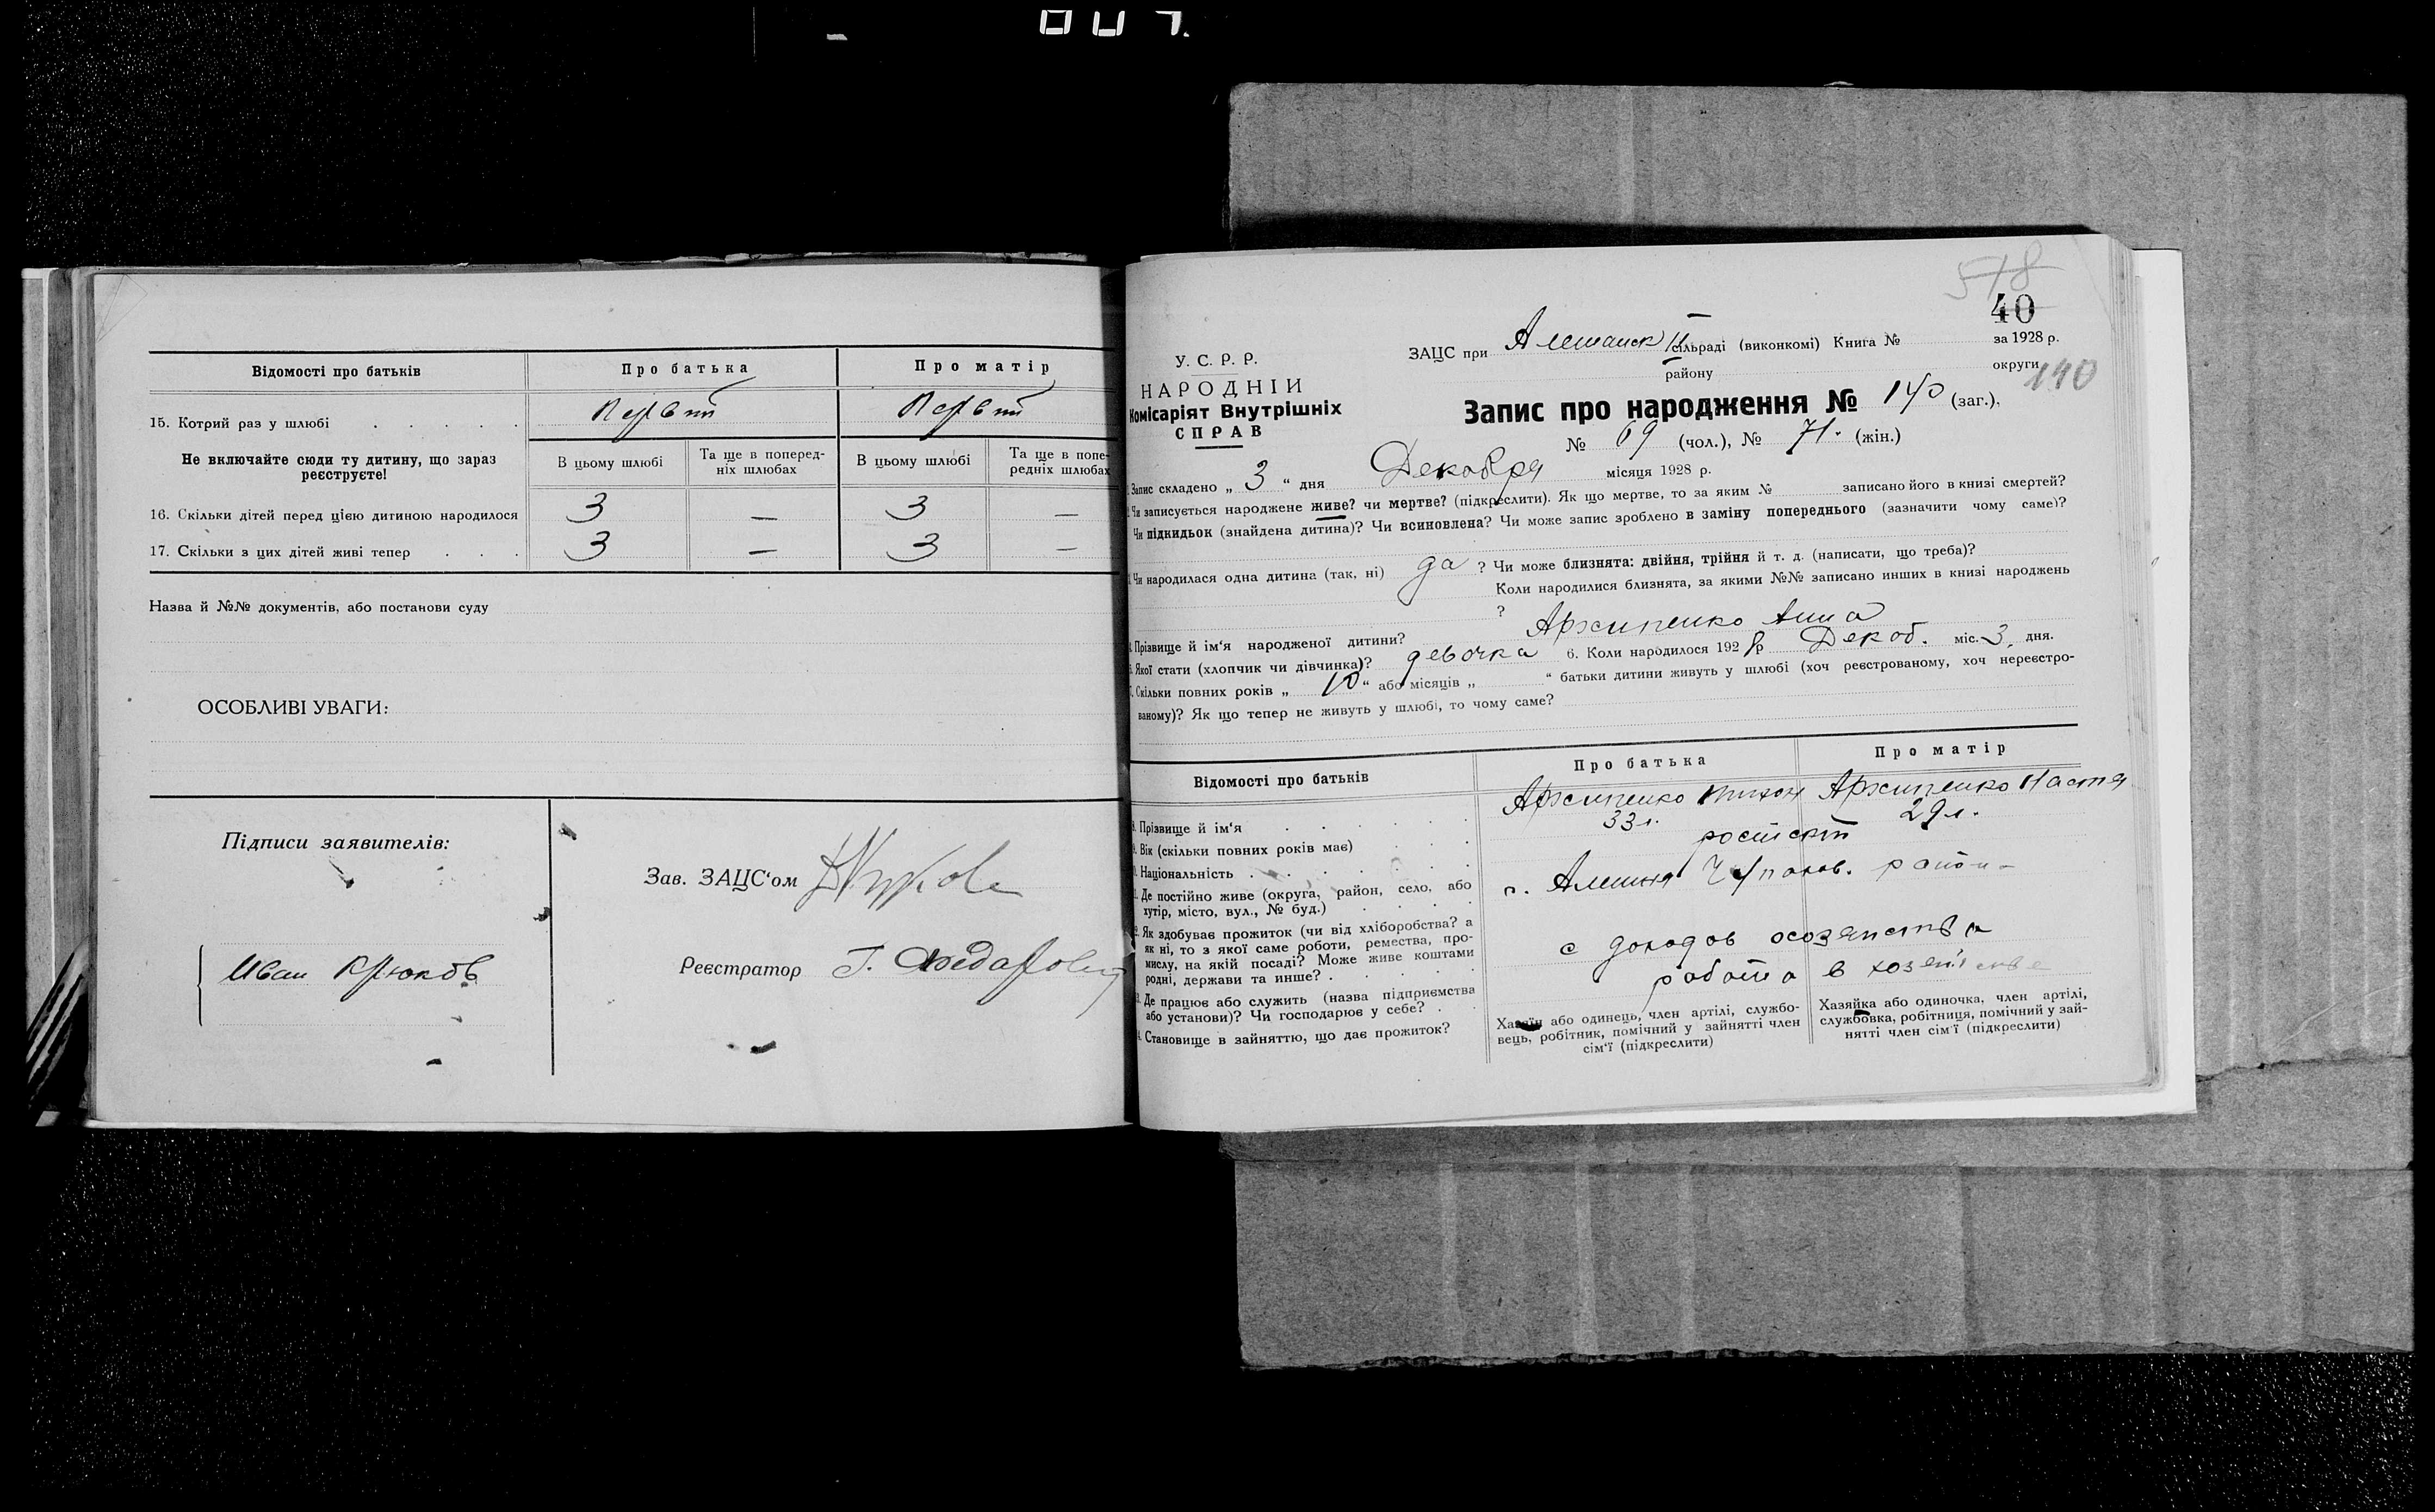 Відомості про батьків
Про батька
Про матір
15. Котрий раз у шлюбі
Первый
Первый
Не включайте сюди ту дитину, що зараз
реєструєте!
В цьому шлюбі
Та ще в поперед-
ніх шлюбах
В цьому шлюбі
Та ще в попе-
редніх шлюбах
16. Скільки дітей перед цією дитиною народилося
3
—
3
—
17. Скільки з цих дітей живі тепер
3
—
3
—
Назва й №№ документів, або постанови суду
ОСОБЛИВІ УВАГИ:
Підписи заявителів:
Иван Крюков
Зав. ЗАЦС'ом
Реєстратор Г.
518
40
У. С. Р. Р.
НАРОДНІЙ
Комісаріят Внутрішніх
СПРАВ
ЗАЦС при Алешанск II сільраді (виконкомі) Книга № за 1928 р.
району округи
140
Запис про народження № 140 (заг.),
№ 69 (чол.), № 71. (жін.)
Запис складено „ 3 “ дня Декабря місяця 1928 р.
Чи записується народжене живе? чи мертве? (підкреслити). Як що мертве, то за яким № записано його в книзі смертей?
Чи підкидьок (знайдена дитина)? Чи всиновлена? Чи може запис зроблено в заміну попереднього (зазначити чому саме)?
Чи народилася одна дитина (так, ні) да ? Чи може близнята: двійня, трійня й т. д. (написати, що треба)?
Коли народилися близнята, за якими №№ записано инших в книзі народжень
?
Прізвище й ім'я народженої дитини? Архипенко Анна
Якої стати (хлопчик чи дівчинка)? девочка 6. Коли народилося 1928 р Декаб. міс. 3. дня.
Скільки повних років „ 10 “ або місяців „ “ батьки дитини живуть у шлюбі (хоч реєстрованому, хоч нереєстро-
ваному)? Як що тепер не живуть у шлюбі, то чому саме?
Відомості про батьків
Про батька
Про матір
Прізвище й ім'я
Архипенко Тихон
Архипенко Настя
Вік (скільки повних років має)
33 л.
29 л.
Національність
російскій
Де постійно живе (округа, район, село, або
хутір, місто, вул., № буд.)
с. Алешня Чупахов. район
Як здобуває прожиток (чи від хліборобства? а
як ні, то з якої саме роботи, ремества, про-
мислу, на якій посаді? Може живе коштами
родні, держави та инше?
с доходов
Де працює або служить (назва підприємства
або установи)? Чи господарює у себе?
работа в хозяйстве
Становище в зайняттю, що дає прожиток?
Хазяїн або одинець, член артілі, службо-
вець, робітник, помічний у зайнятті член
сім'ї (підкреслити)
Хазяйка або одиночка, член артілі,
службовка, робітниця, помічний у зай-
нятті член сім'ї (підкреслити)